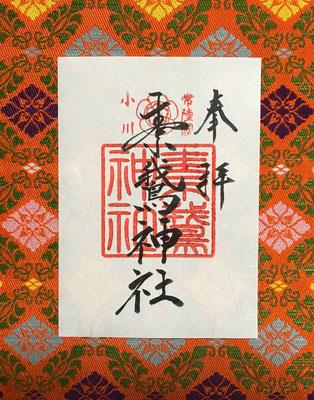 奉拝
常陸國
小川
素鵞神社
素鵞神社